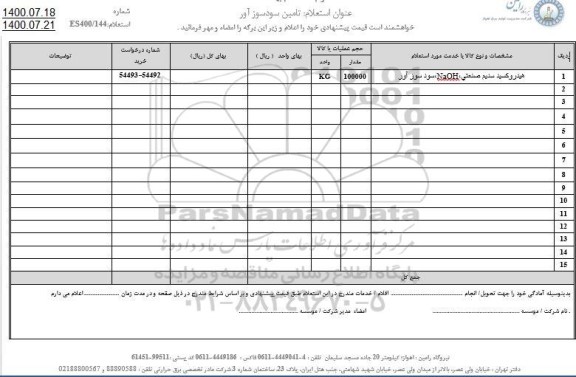 1400.07.18
1400.07.21
شماره
استعلام: ES400/144
عنوان استعلام: تامین سودسوز آور
خواهشمند است قیمت پیشنهادی خود را اعلام و زیر این برگه را امضاء و مهر فرمائید .
ردیف
مشخصات و نوع کالا یا خدمت مورد استعلام
حجم عملیات یا کالا
مقدار
واحد
بهای واحد ( ریال )
بهای کل (ریال)
شماره درخواست خرید
توضیحات
1
هیدروکسید سدیم صنعتی،NaOH،سود سوز آور
100000
KG
54493-54492
2
3
4
5
6
7
8
9
10
11
12
13
14
15
جمع کل
ParsNamadData
مرکز فرآوری اطلاعات پارس نماد داده ها
پایگاه اطلاع رسانی مناقصه و مزایده
۰۲۱-۸۸۳۴۹۶۷۰-۵
بدینوسیله آمادگی خود را جهت تحویل/ انجام .................... اقلام / خدمات مندرج در این استعلام طبق قیمت پیشنهادی و بر اساس شرایط مندرج در ذیل صفحه و در مدت زمان ............ اعلام می دارم
. نام شرکت / موسسه ....................
امضاء مدیر شرکت / موسسه ....................
نیروگاه رامین : اهواز؛ کیلومتر 20 جاده مسجد سلیمان تلفن : 4-4449041-0611 فاکس : 4449186-0611 کد پستی :99511-61451
دفتر تهران : خیابان ولی عصر، بالاتر از میدان ولی عصر، خیابان شهید شهامتی، جنب هتل ایران، پلاک 23 ساختمان شماره 3 شرکت مادر تخصصی برق حرارتی تلفن : 88890588 و 02188800567